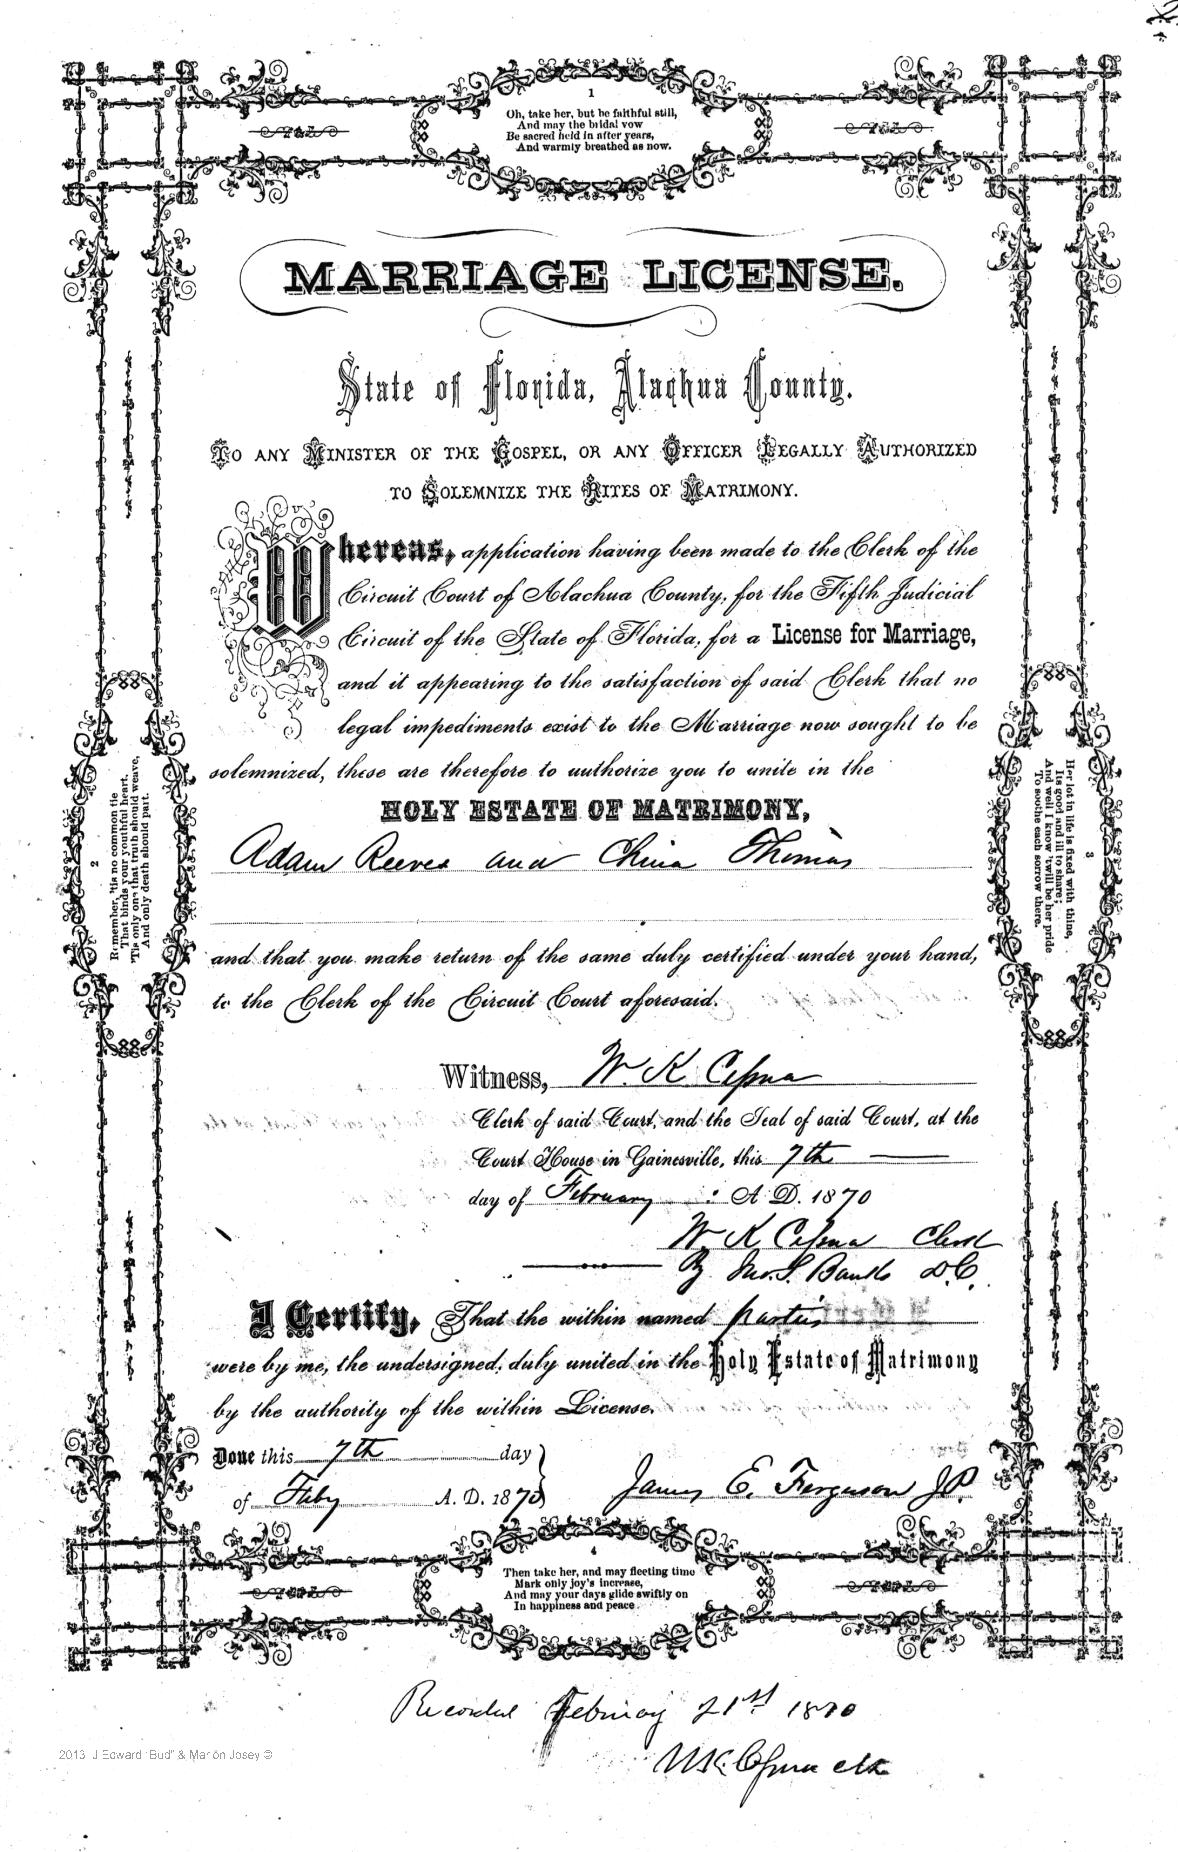 1
Oh, take her, but be faithful still,
And may the bridal vow
Be sacred held in after years,
And warmly breathed as now.
MARRIAGE LICENSE.
State of Florida, Alachua County.
TO ANY MINISTER OF THE GOSPEL, OR ANY OFFICER LEGALLY AUTHORIZED
TO SOLEMNIZE THE RITES OF MATRIMONY.
Whereas, application having been made to the Clerk of the
Circuit Court of Alachua County, for the Fifth Judicial
Circuit of the State of Florida, for a License for Marriage,
and it appearing to the satisfaction of said Clerk that no
legal impediments exist to the Marriage now sought to be
solemnized, these are therefore to authorize you to unite in the
HOLY ESTATE OF MATRIMONY,
Adam Reeves and China Thomas
and that you make return of the same duly certified under your hand,
to the Clerk of the Circuit Court aforesaid.
2
Remember, 'tis no common tie
That binds your youthful heart.
'Tis only one that truth should weave,
And only death should part.
3
Her lot in life is fixed with thine,
Its good and ill to share;
And well I know 'twill be her pride
To soothe each sorrow there.
Witness, W. K Cessna
Clerk of said Court, and the Seal of said Court, at the
Court House in Gainesville, this 7th
day of February : A. D. 1870
W. K Cessna Clerk
By Jno. S. Banks D.C.
I Certify, That the within named parties
were by me, the undersigned, duly united in the Holy Estate of Matrimony
by the authority of the within License.
Done this 7th day
of Feby A. D. 1870
James E. Ferguson JP.
4
Then take her, and may fleeting time
Mark only joy's increase,
And may your days glide swiftly on
In happiness and peace
Recorded February 21st 1870
WK Cessna clk
2013 J Edward "Bud" & Marion Josey ©